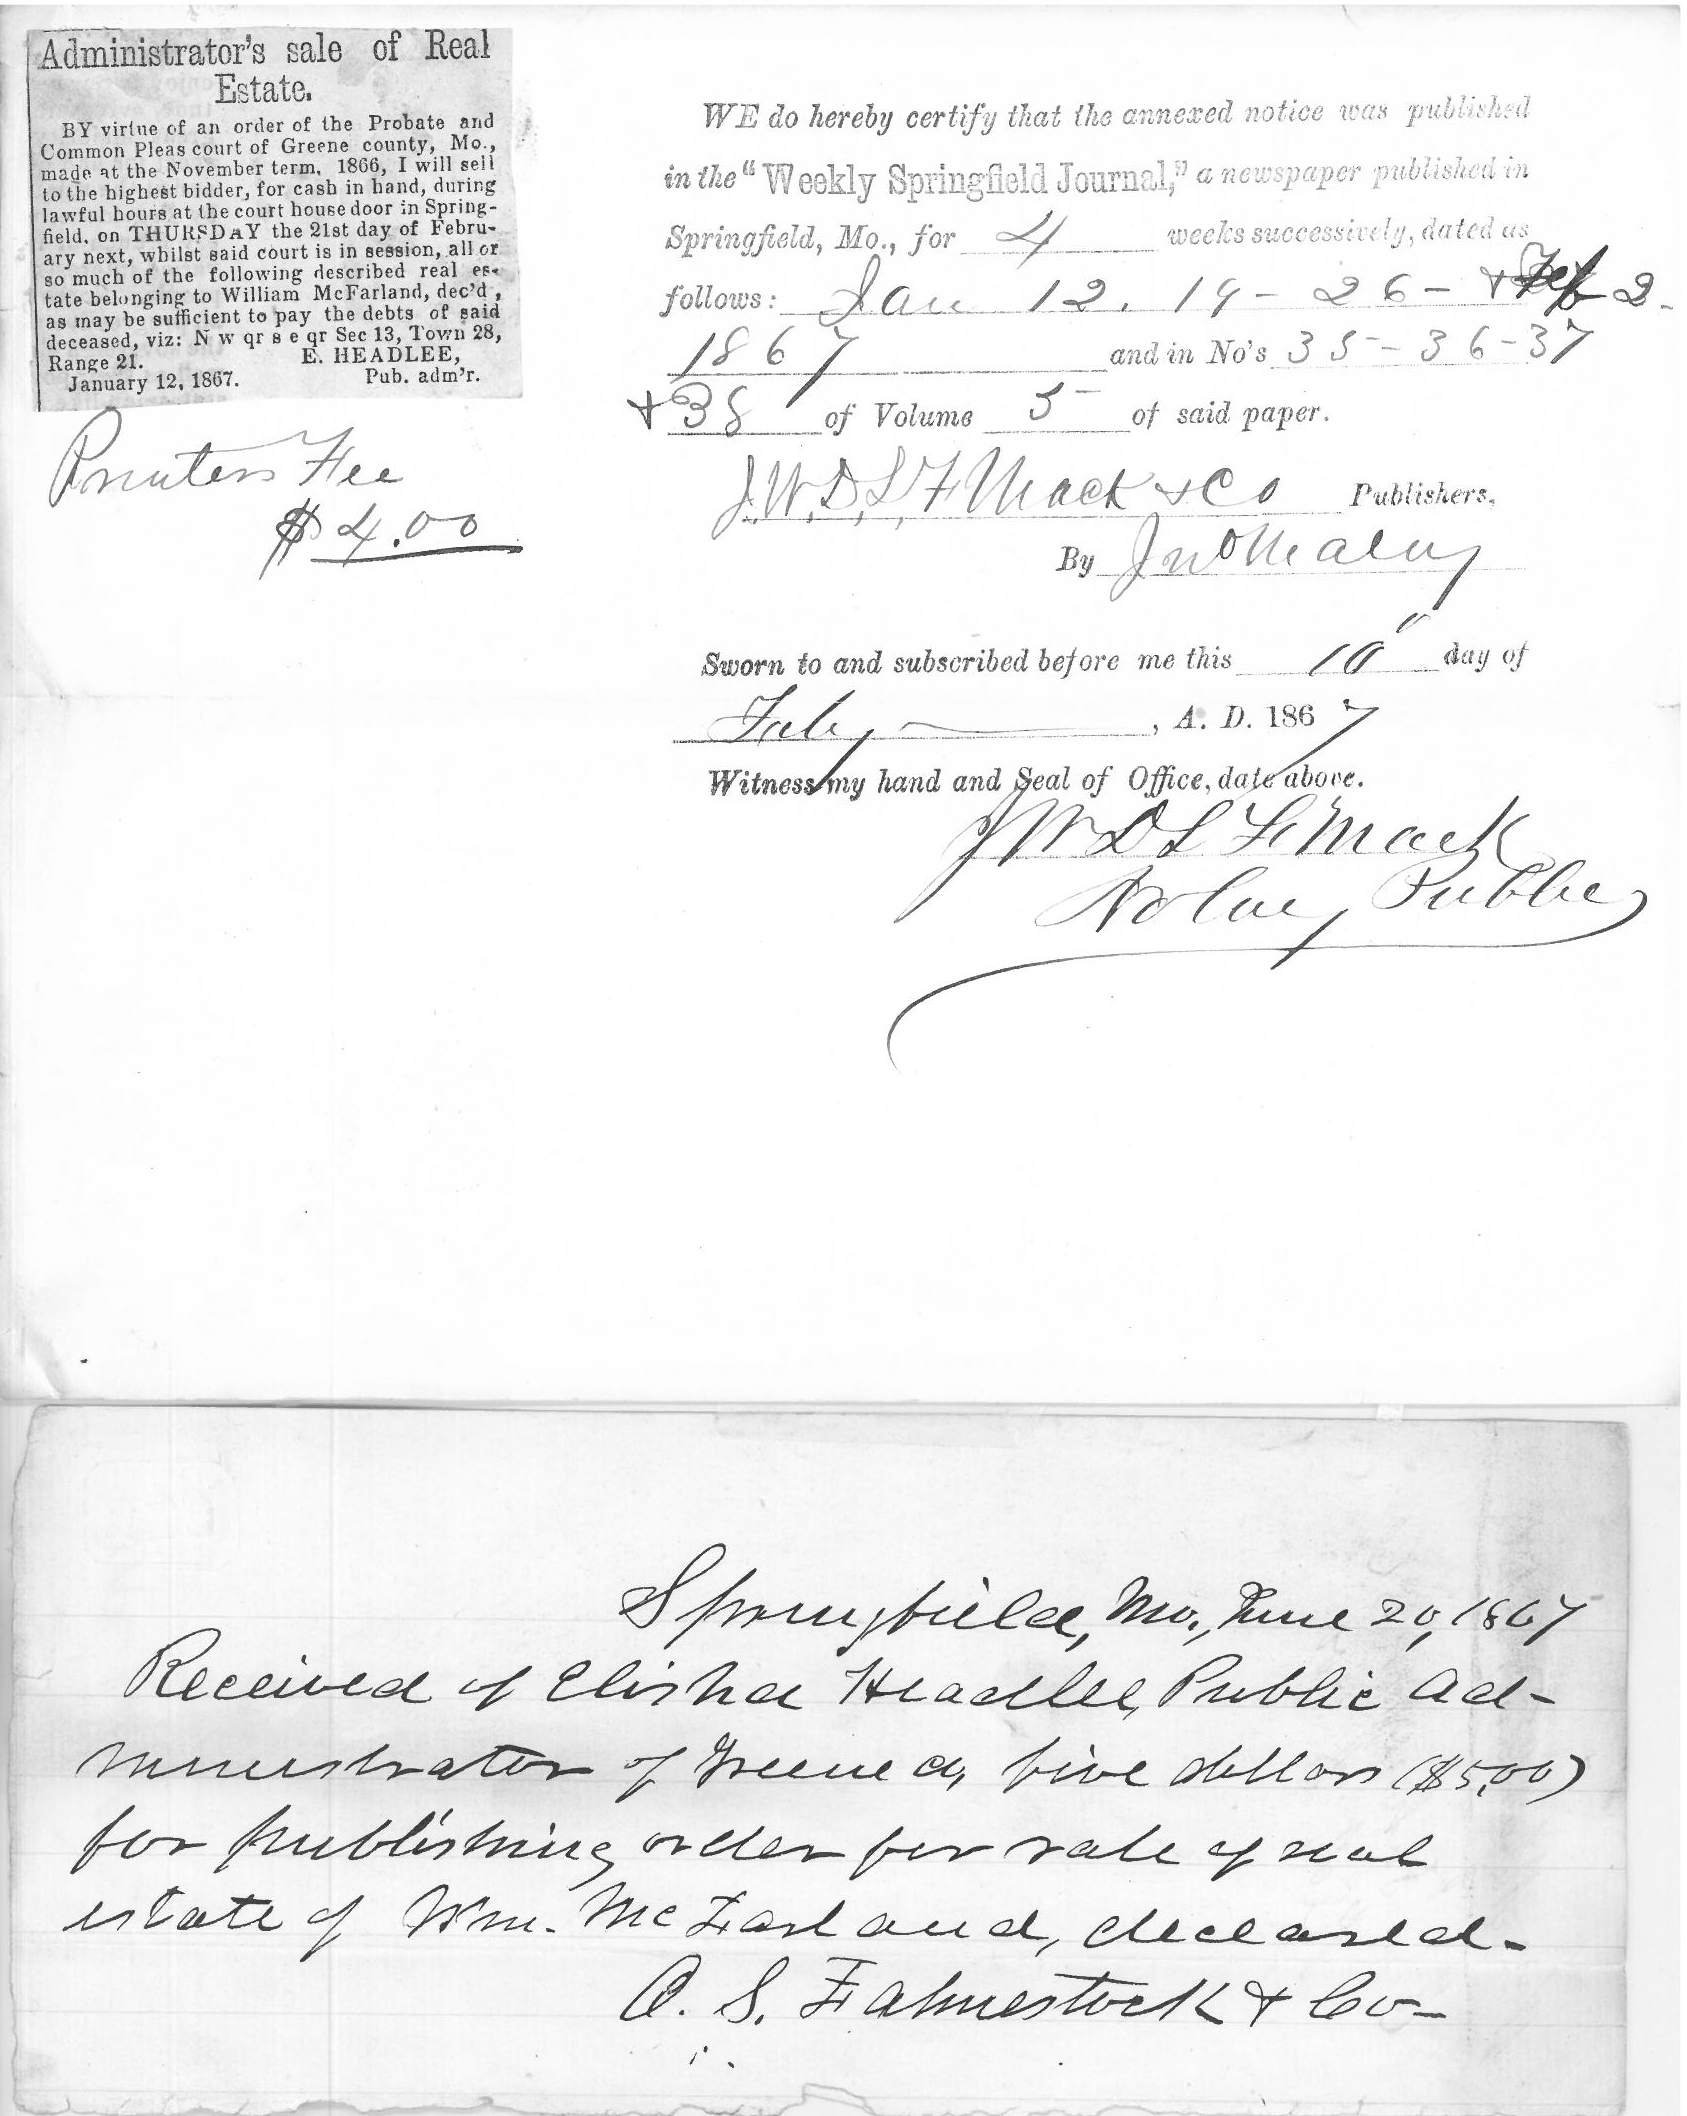 Administrator's sale of Real
Estate.
BY virtue of an order of the Probate and
Common Pleas court of Greene county, Mo.,
made at the November term, 1866, I will sell
to the highest bidder, for cash in hand, during
lawful hours at the court house door in Spring-
field, on THURSDAY the 21st day of Febru-
ary next, whilst said court is in session, all or
so much of the following described real es-
tate belonging to William McFarland, dec'd,
as may be sufficient to pay the debts of said
deceased, viz: N w qr s e qr Sec 13, Town 28,
Range 21. E. HEADLEE,
January 12, 1867. Pub. adm'r.
Printers Fee
$4.00
WE do hereby certify that the annexed notice was published
in the "Weekly Springfield Journal," a newspaper published in
Springfield, Mo., for 4 weeks successively, dated as
follows: Jan 12. 19 - 26 - + Feb 2 -
1867 and in No's 35 - 36 - 37
+ 38 of Volume 5 of said paper.
J.W.D.L.F. Mack & Co Publishers,
By Jno
Sworn to and subscribed before me this 10" day of
Feby, A. D. 1867
Witness my hand and Seal of Office, date above.
J W D L F Mack
Notary Public
Springfield, Mo., June 20, 1867
Received of Elisha Headlee, Public Ad-
ministrator of Greene Co, five dollars ($5,00)
for publishing order for sale of real
estate of Wm. McFarland, deceased.-
A. S. Fahnestock & Co-